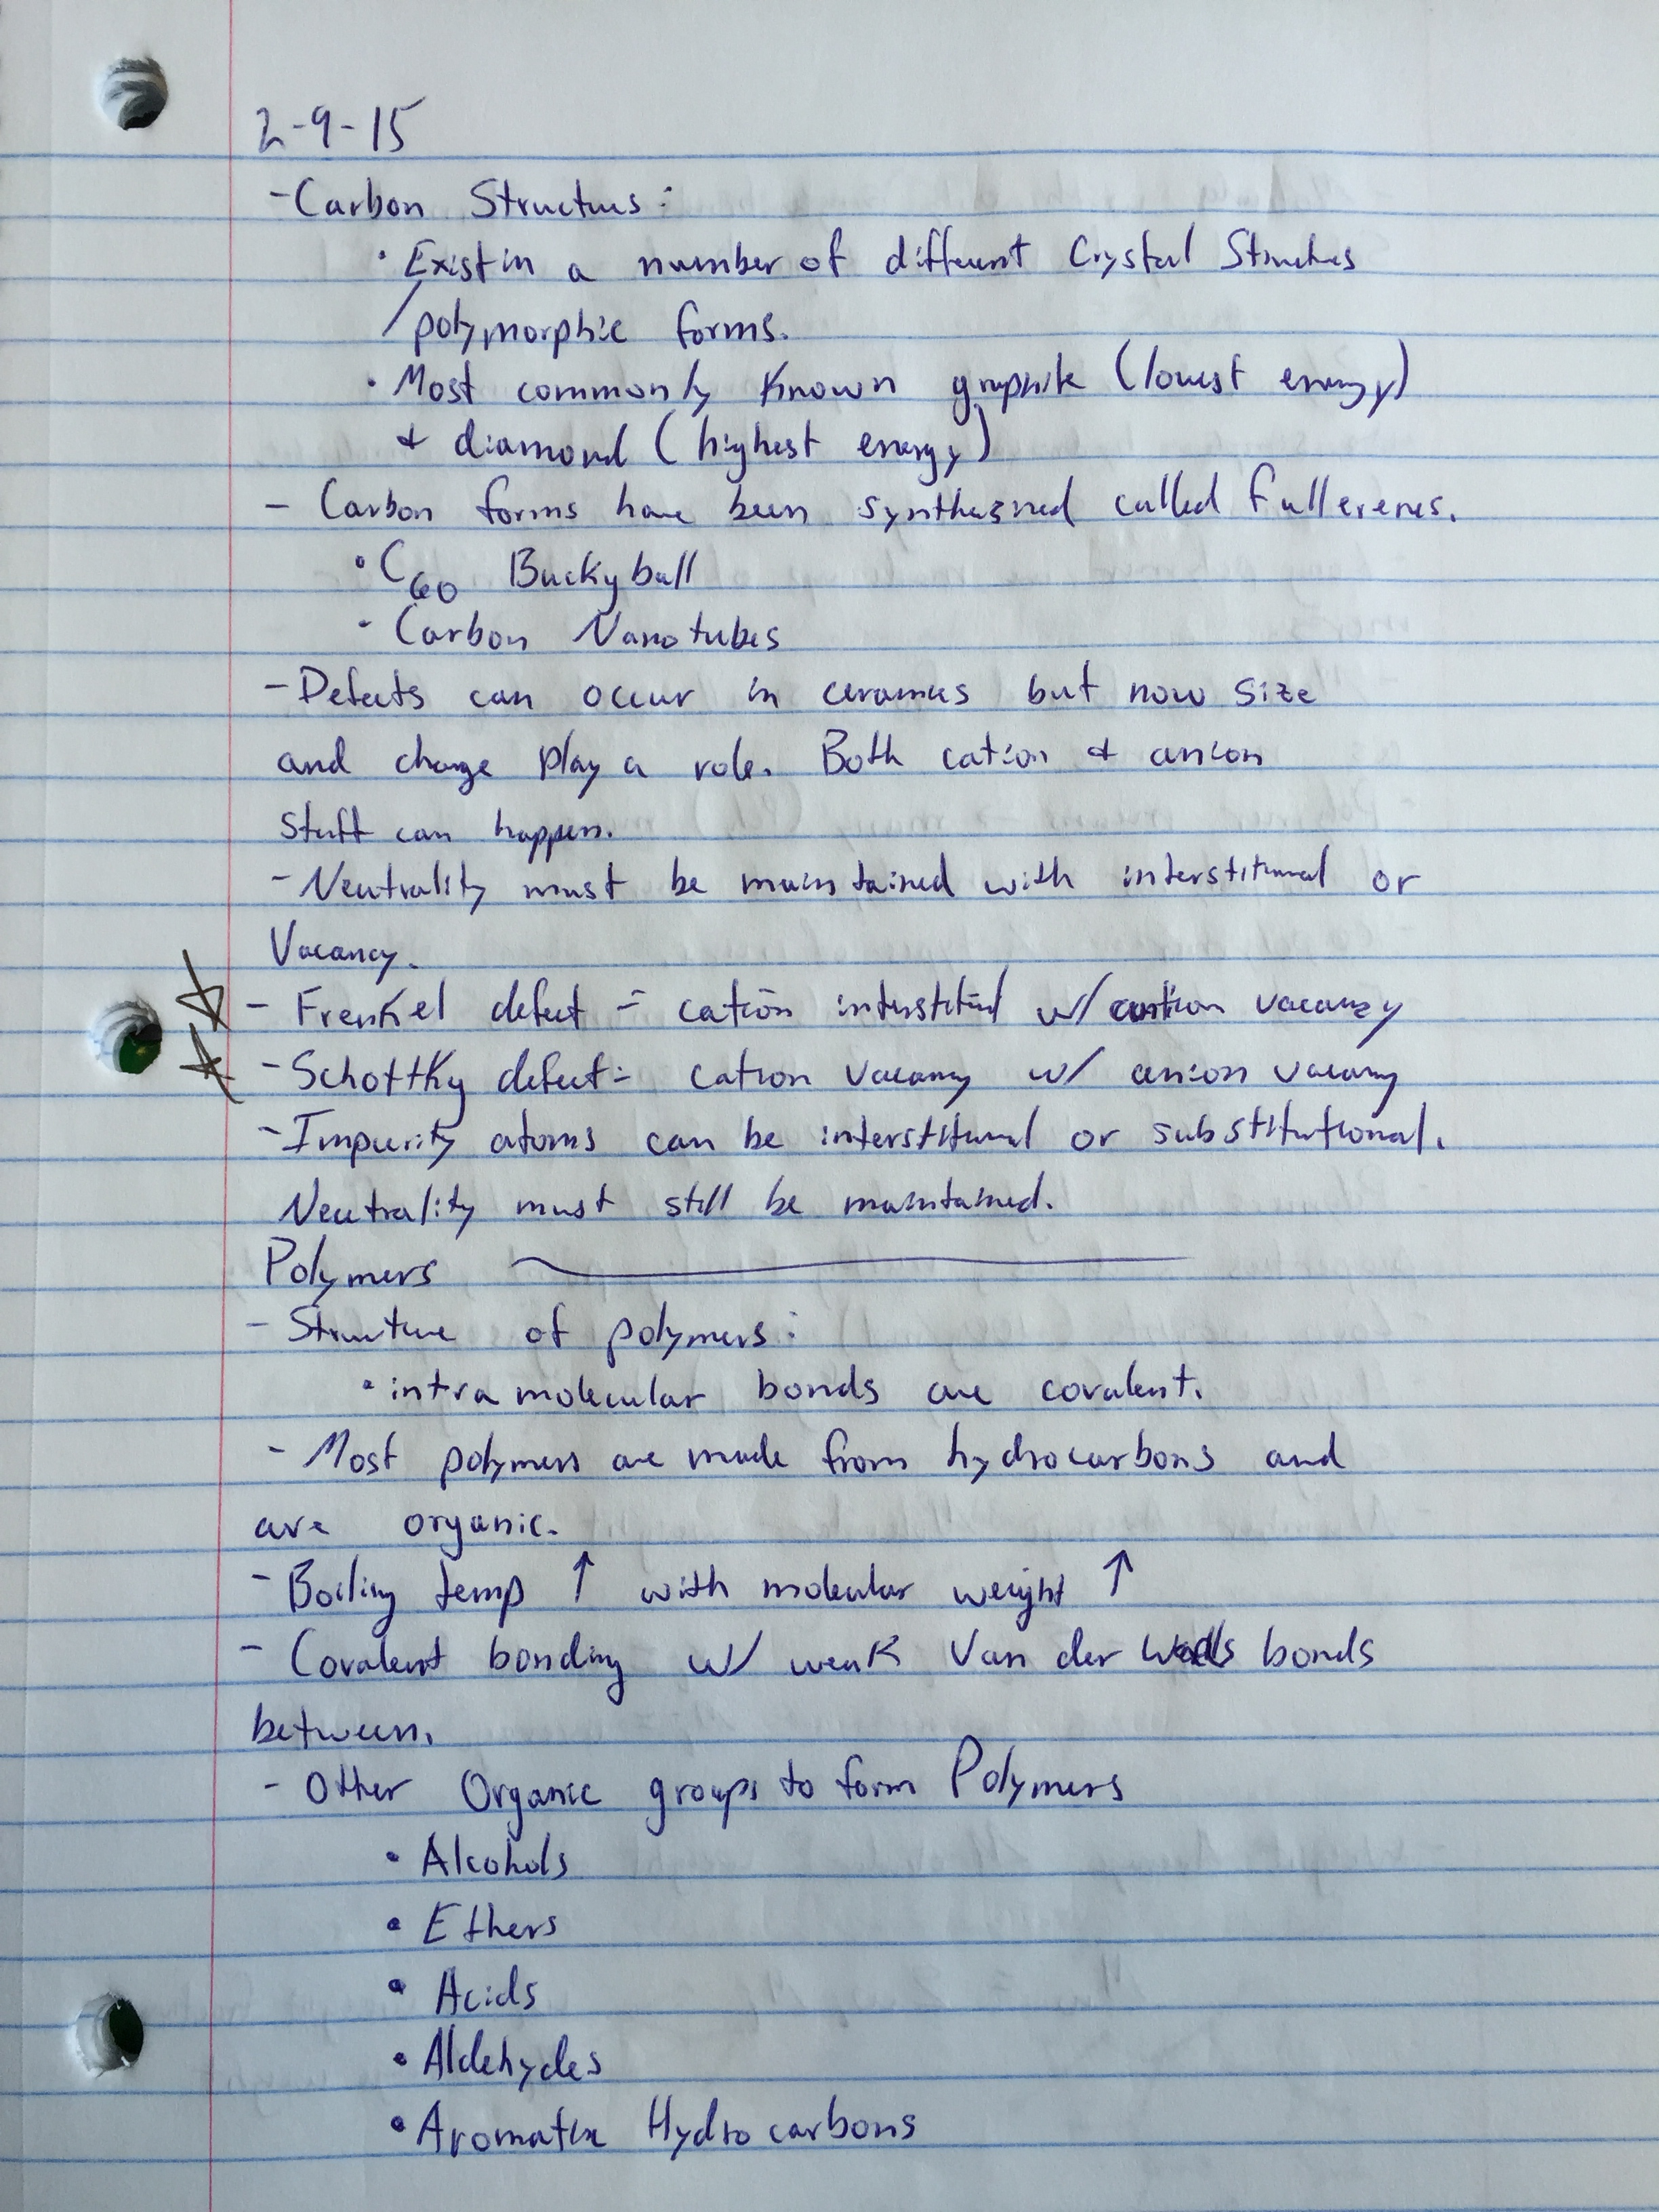 2-9-15
- Carbon Structures:
• Exist in a number of different Crystal Structures
/polymorphic forms.
• Most commonly known graphite (lowest energy)
& diamond (highest energy)
- Carbon forms have been synthesized called Fullerenes.
• C60 Buckyball
• Carbon Nanotubes
- Defects can occur in ceramics but now size
and charge play a role. Both cation & anion
stuff can happen.
- Neutrality must be maintained with interstitional or
Vacancy.
- Frenkel defect = cation interstitial w/ cation vacancy
- Schottky defect = cation vacancy w/ anion vacancy
- Impurity atoms can be interstitional or substitutional.
Neutrality must still be maintained.
Polymers
- Structure of polymers:
• intramolecular bonds are covalent.
- Most polymers are made from hydrocarbons and
are organic.
- Boiling temp ↑ with molecular weight ↑
- Covalent bonding w/ weak Van der Walls bonds
between.
- Other Organic groups to form Polymers
• Alcohols
• Ethers
• Acids
• Aldehydes
• Aromatic Hydrocarbons